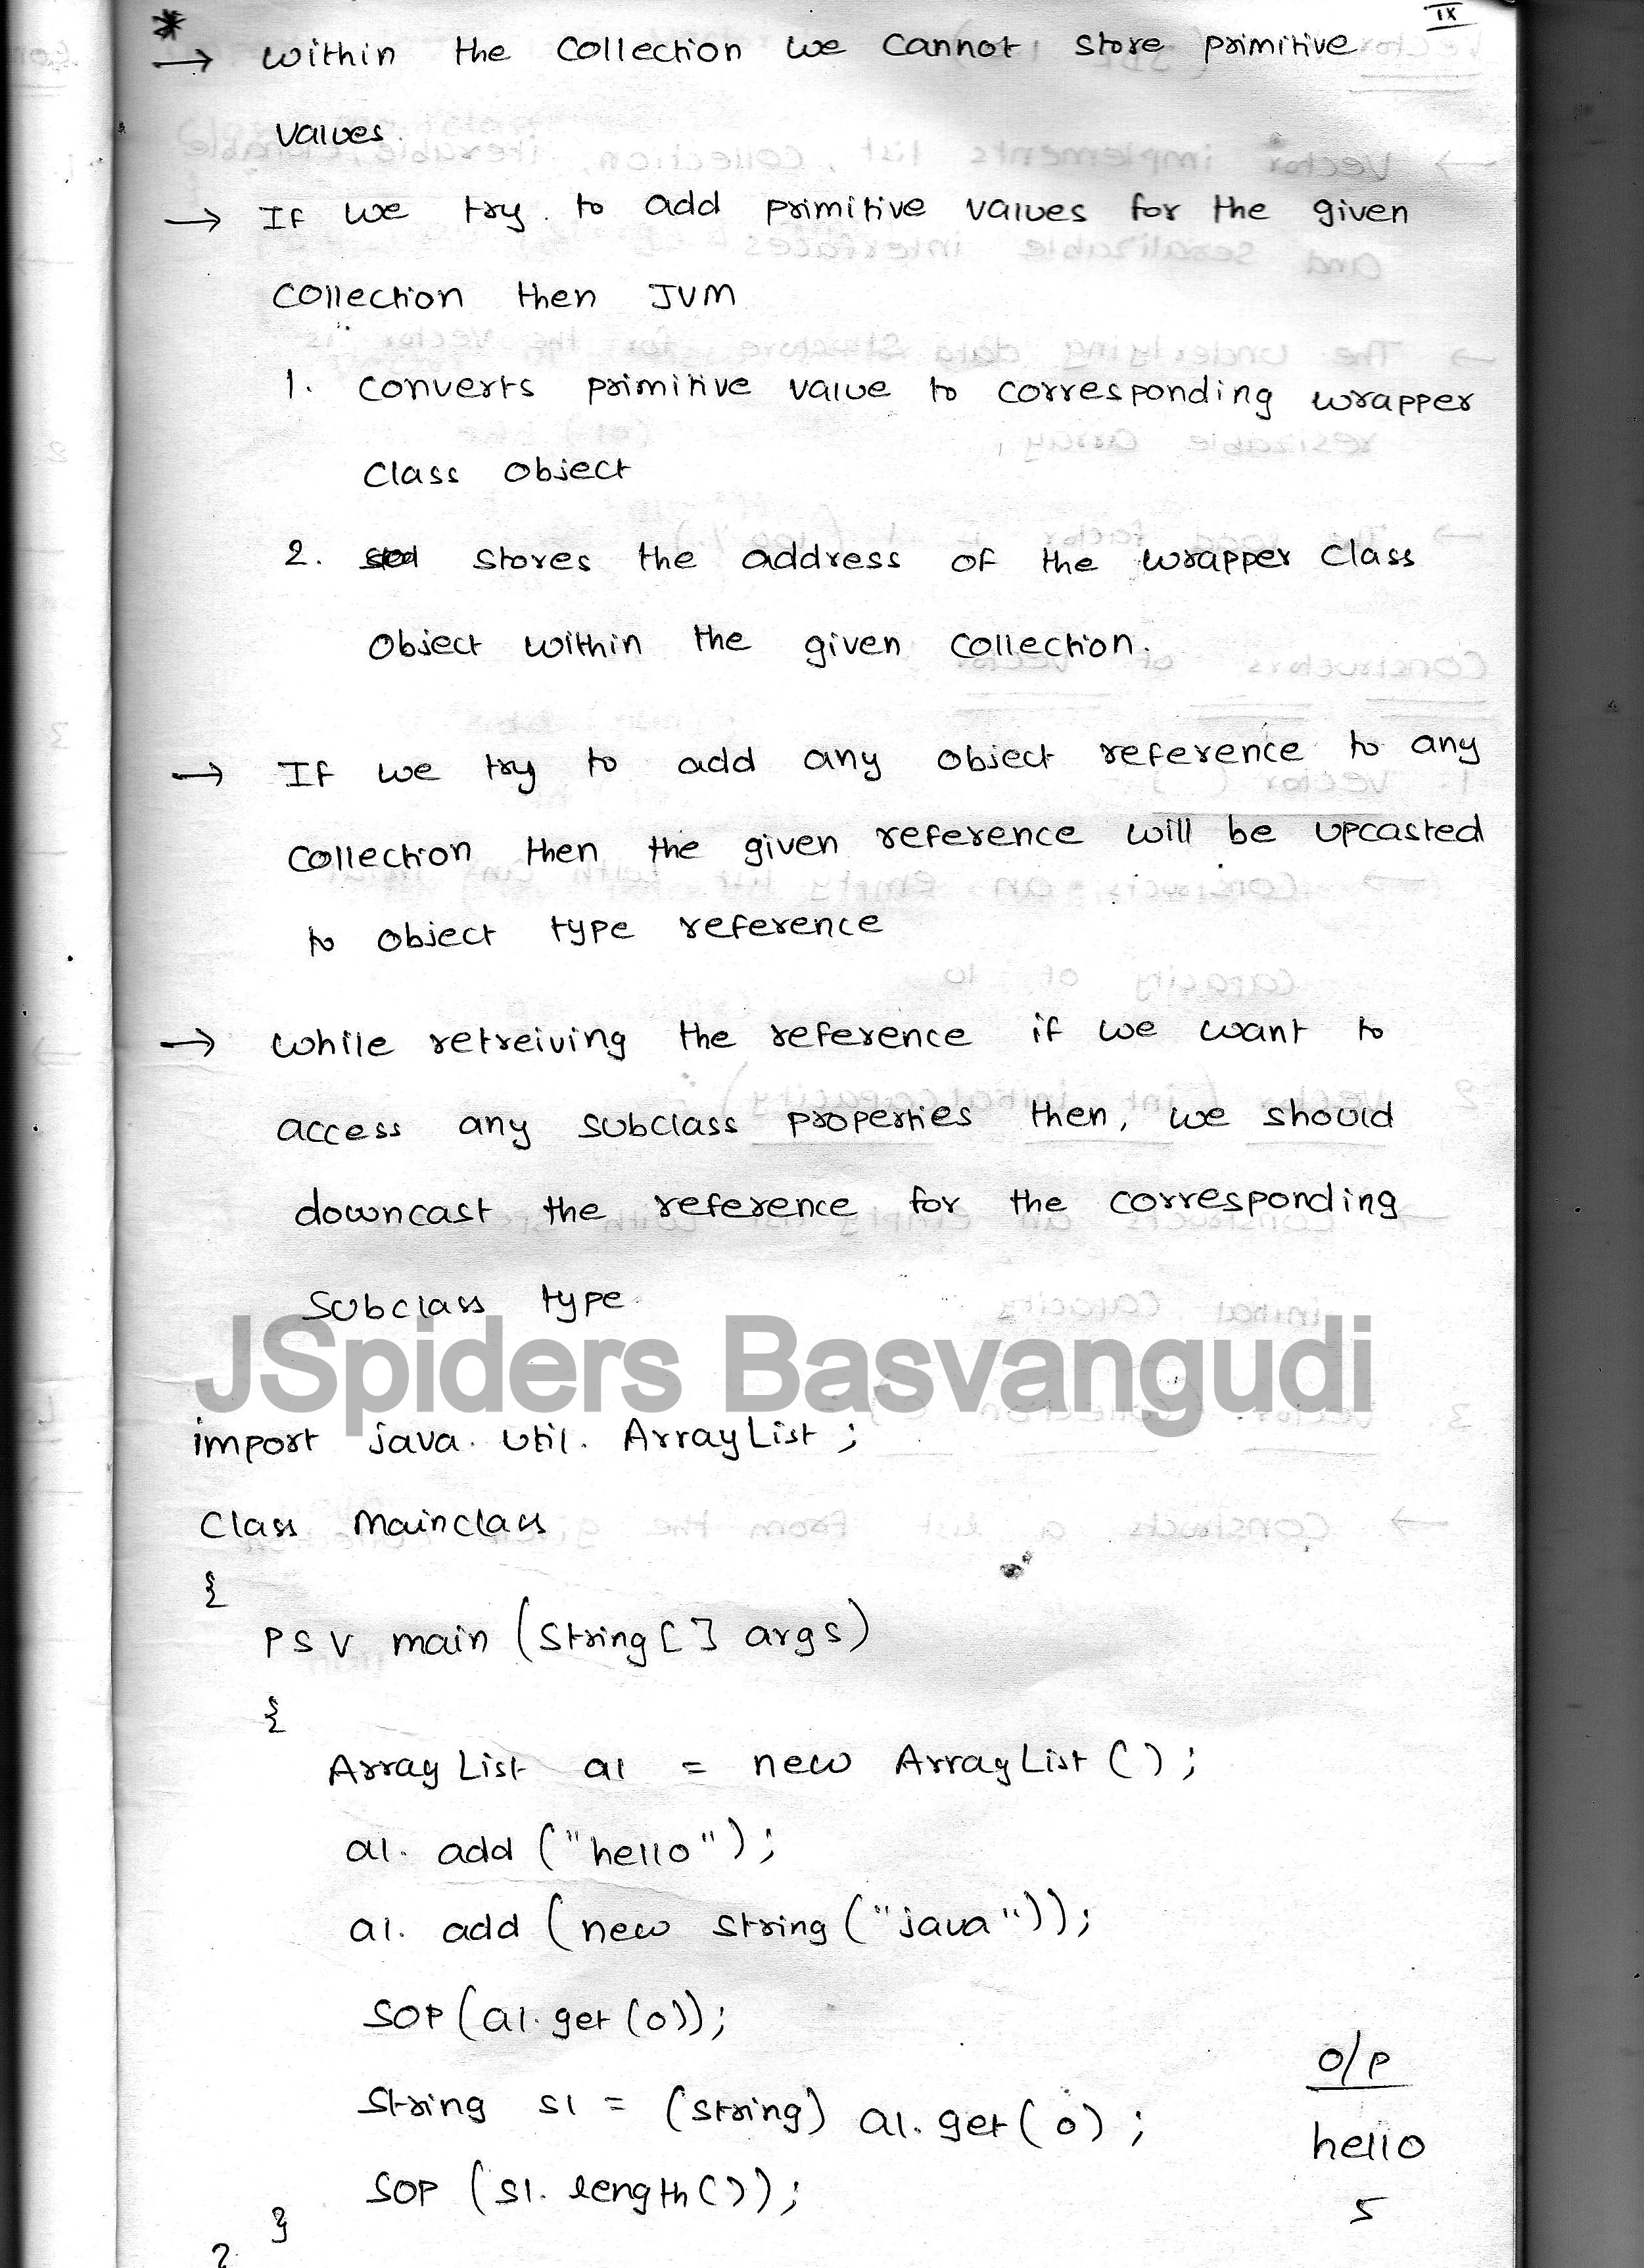 IX
* → within the collection we cannot store primitive
values.
→ If we try to add primitive values for the given
collection then JVM
1. converts primitive value to corresponding wrapper
class object
2. stores the address of the wrapper class
object within the given collection.
→ If we try to add any object reference to any
collection then the given reference will be upcasted
to object type reference
→ while retreiving the reference if we want to
access any subclass properties then, we should
downcast the reference for the corresponding
subclass type
JSpiders Basvangudi
import java.util.ArrayList;
class Mainclass
{
PSV main (String[] args)
{
ArrayList al = new ArrayList();
al.add("hello");
al.add(new String("java"));
SOP(al.get(0));
String s1 = (String) al.get(0);
SOP(s1.length());
}
O/P
hello
5